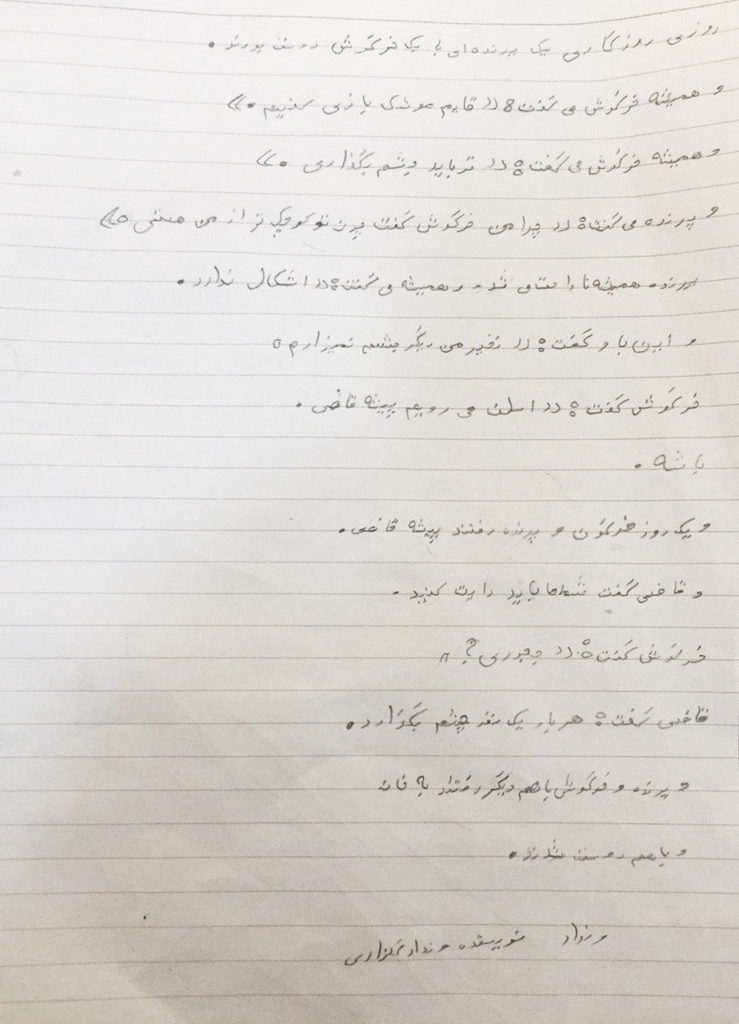 روزی روزگاری یک پرنده‌ای با یک خرگوش دوست بودند.
و همیشه خرگوش می گفت: « قایم موشک بازی کنیم. »
و همیشه خرگوش می گفت: « تو باید چشم بگذاری. »
و پرنده می گفت: « چرا من خرگوش گفت چون تو کوچک تر از من هستی. »
پرنده همیشه ناراحت می شد. و همیشه می گفت: « اشکال ندارد.
و این بار گفت: « نخیر من دیگر چشم نمیزارم.
خرگوش گفت: « اسلن می رویم پیشه قاضی.
باشه.
و یک روز خرگوش و پرنده رفتند پیشه قاضی.
و قاضی گفت شما باید رایت کنید.
خرگوش گفت: « چجوری؟ »
قاضی گفت: هر بار یک نفر چشم بگذارد.
و پرنده و خرگوش با هم دیگر رفتند به خانه
و با هم دوست شدند.
ونداد نویسنده ونداد گلزاری